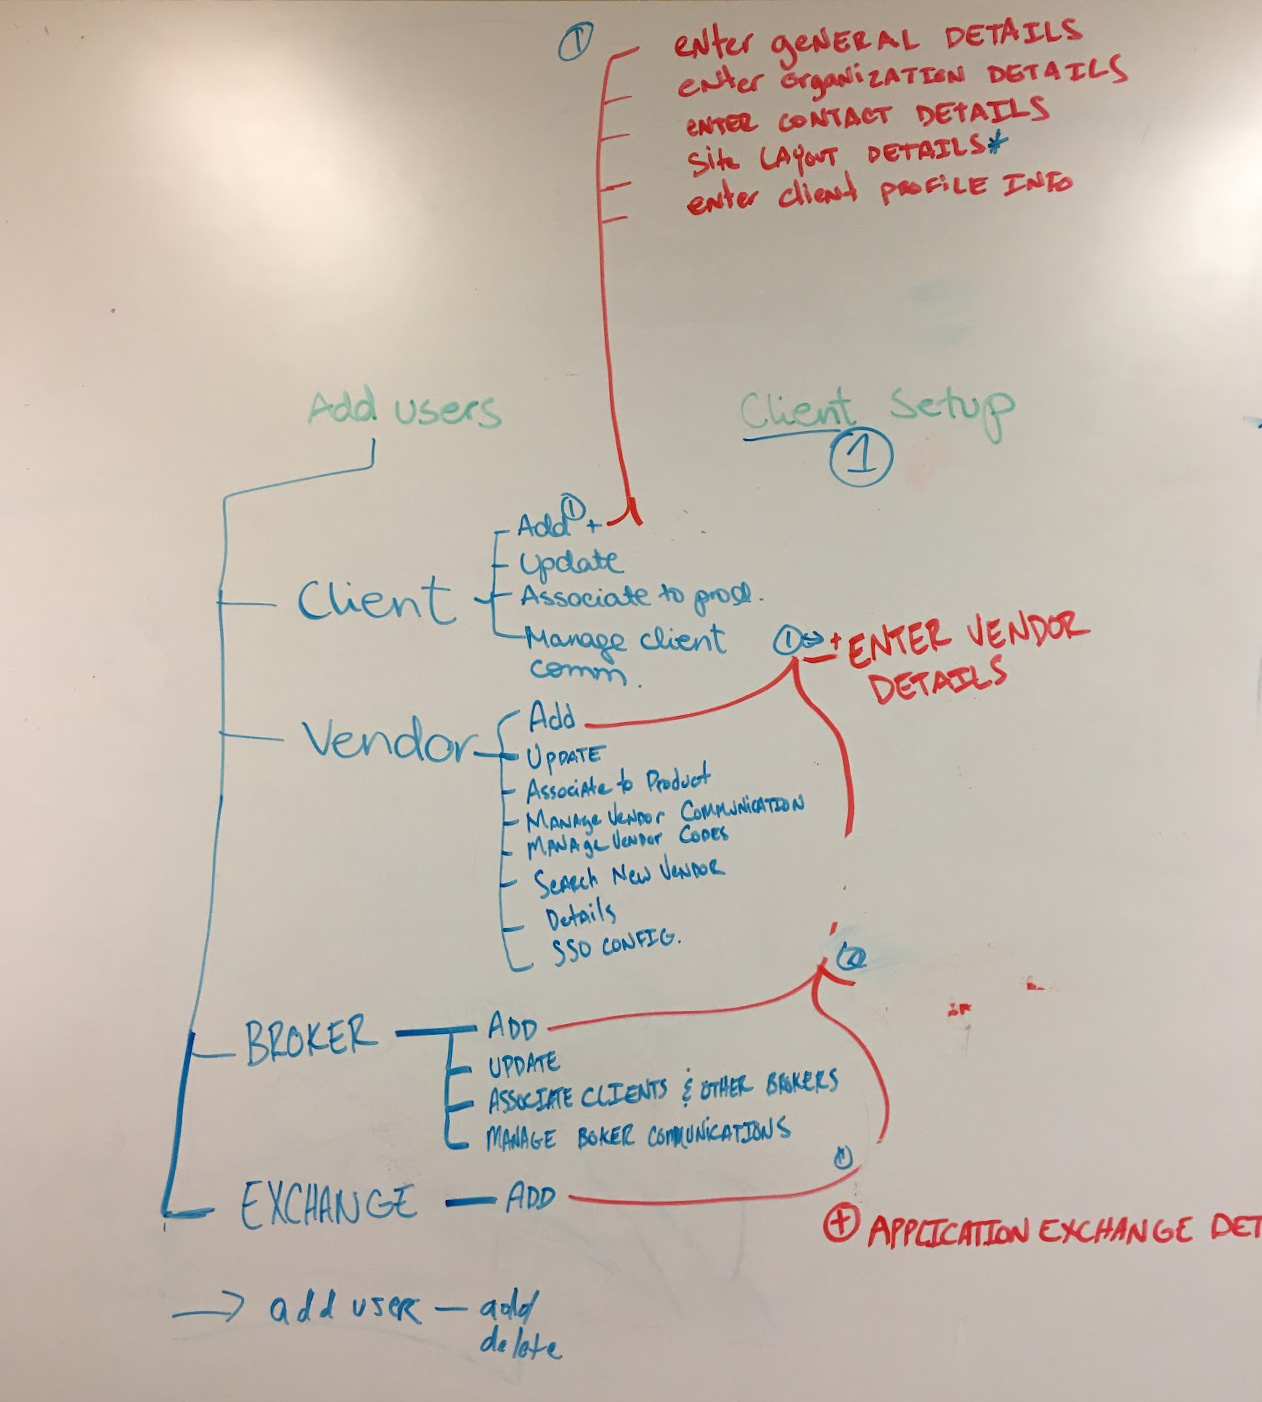 ①
enter GENERAL DETAILS
enter organization DETAILS
ENTER CONTACT DETAILS
Site LAYOUT DETAILS*
enter client PROFILE INFO
Add users
Client Setup
①
Client
Add ① +
Update
Associate to prod.
Manage client
comm.
① ⇒ + ENTER VENDOR
DETAILS
Vendor
Add
UPDATE
Associate to Product
MANAge VENDOR COMMUNICATION
MANAge VENDOR CODES
SEARCH NEW VENDOR
Details
SSO CONFIG.
BROKER
ADD
UPDATE
ASSOCIATE CLIENTS & OTHER BROKERS
MANAGE BOKER COMMUNICATIONS
EXCHANGE
ADD
①
⊕ APPLICATION EXCHANGE DET
→ add user — add/
delete